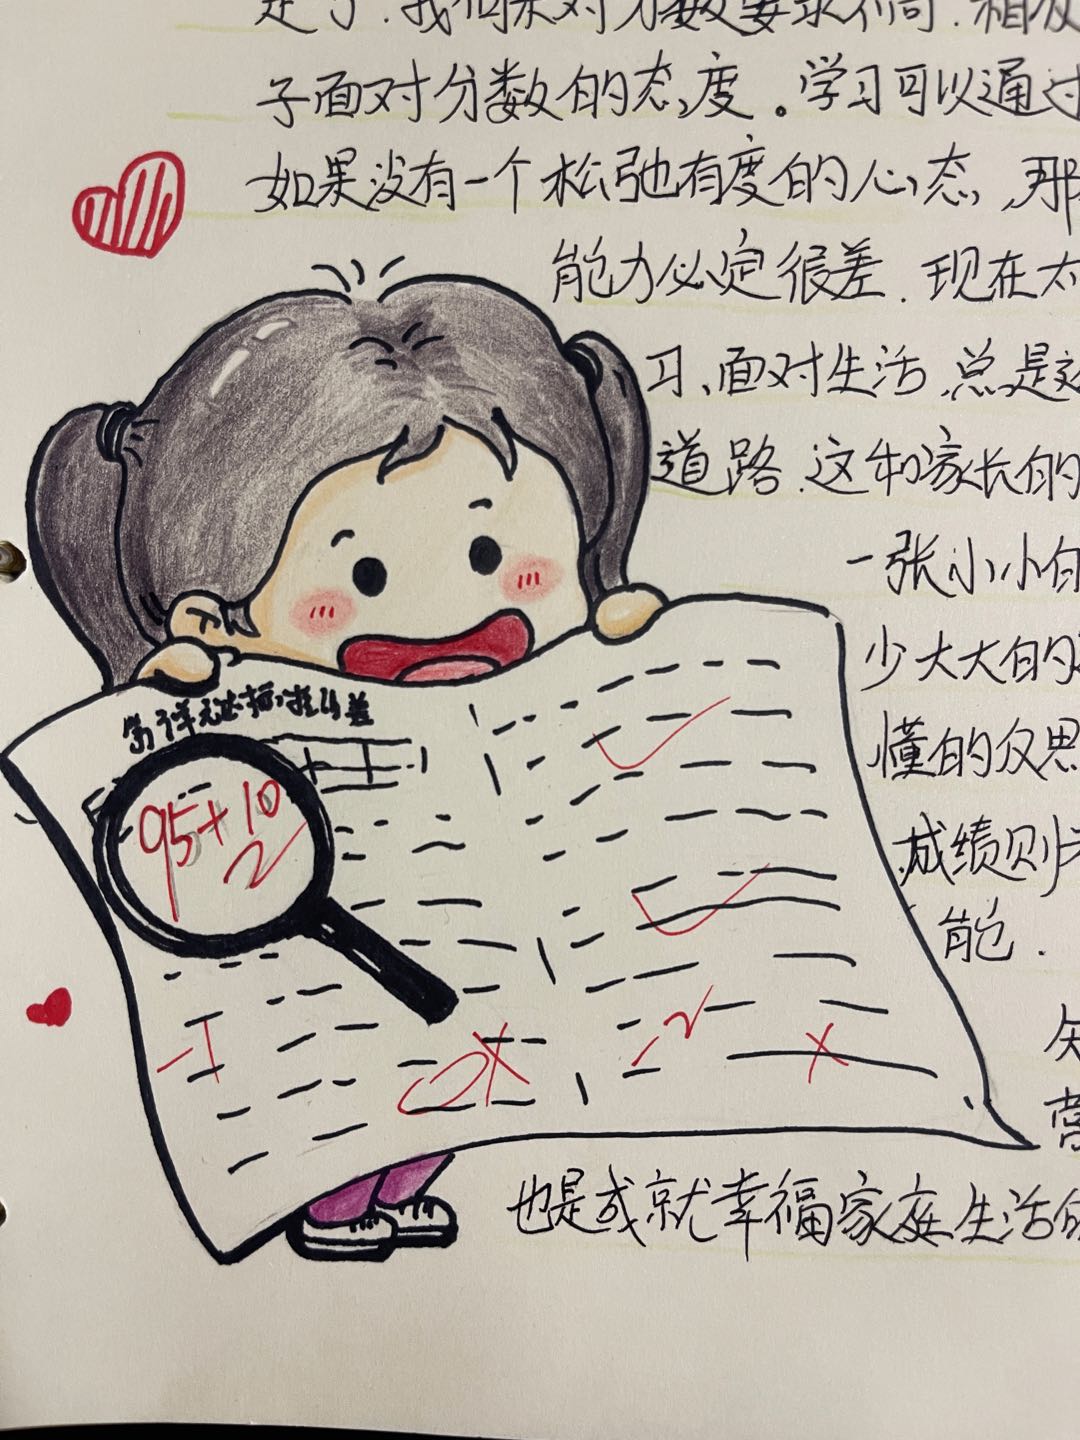 走了.我们不对分数要求不同.相反
子面对分数的态度。学习可以通过
如果没有一个松弛有度的心态,那
能力必定很差.现在太
习、面对生活,总是这
道路.这和家长的
一张小小白
少大大的
懂的仅思
成绩则
能.
95+10
2
-1
也是成就幸福家庭生活的